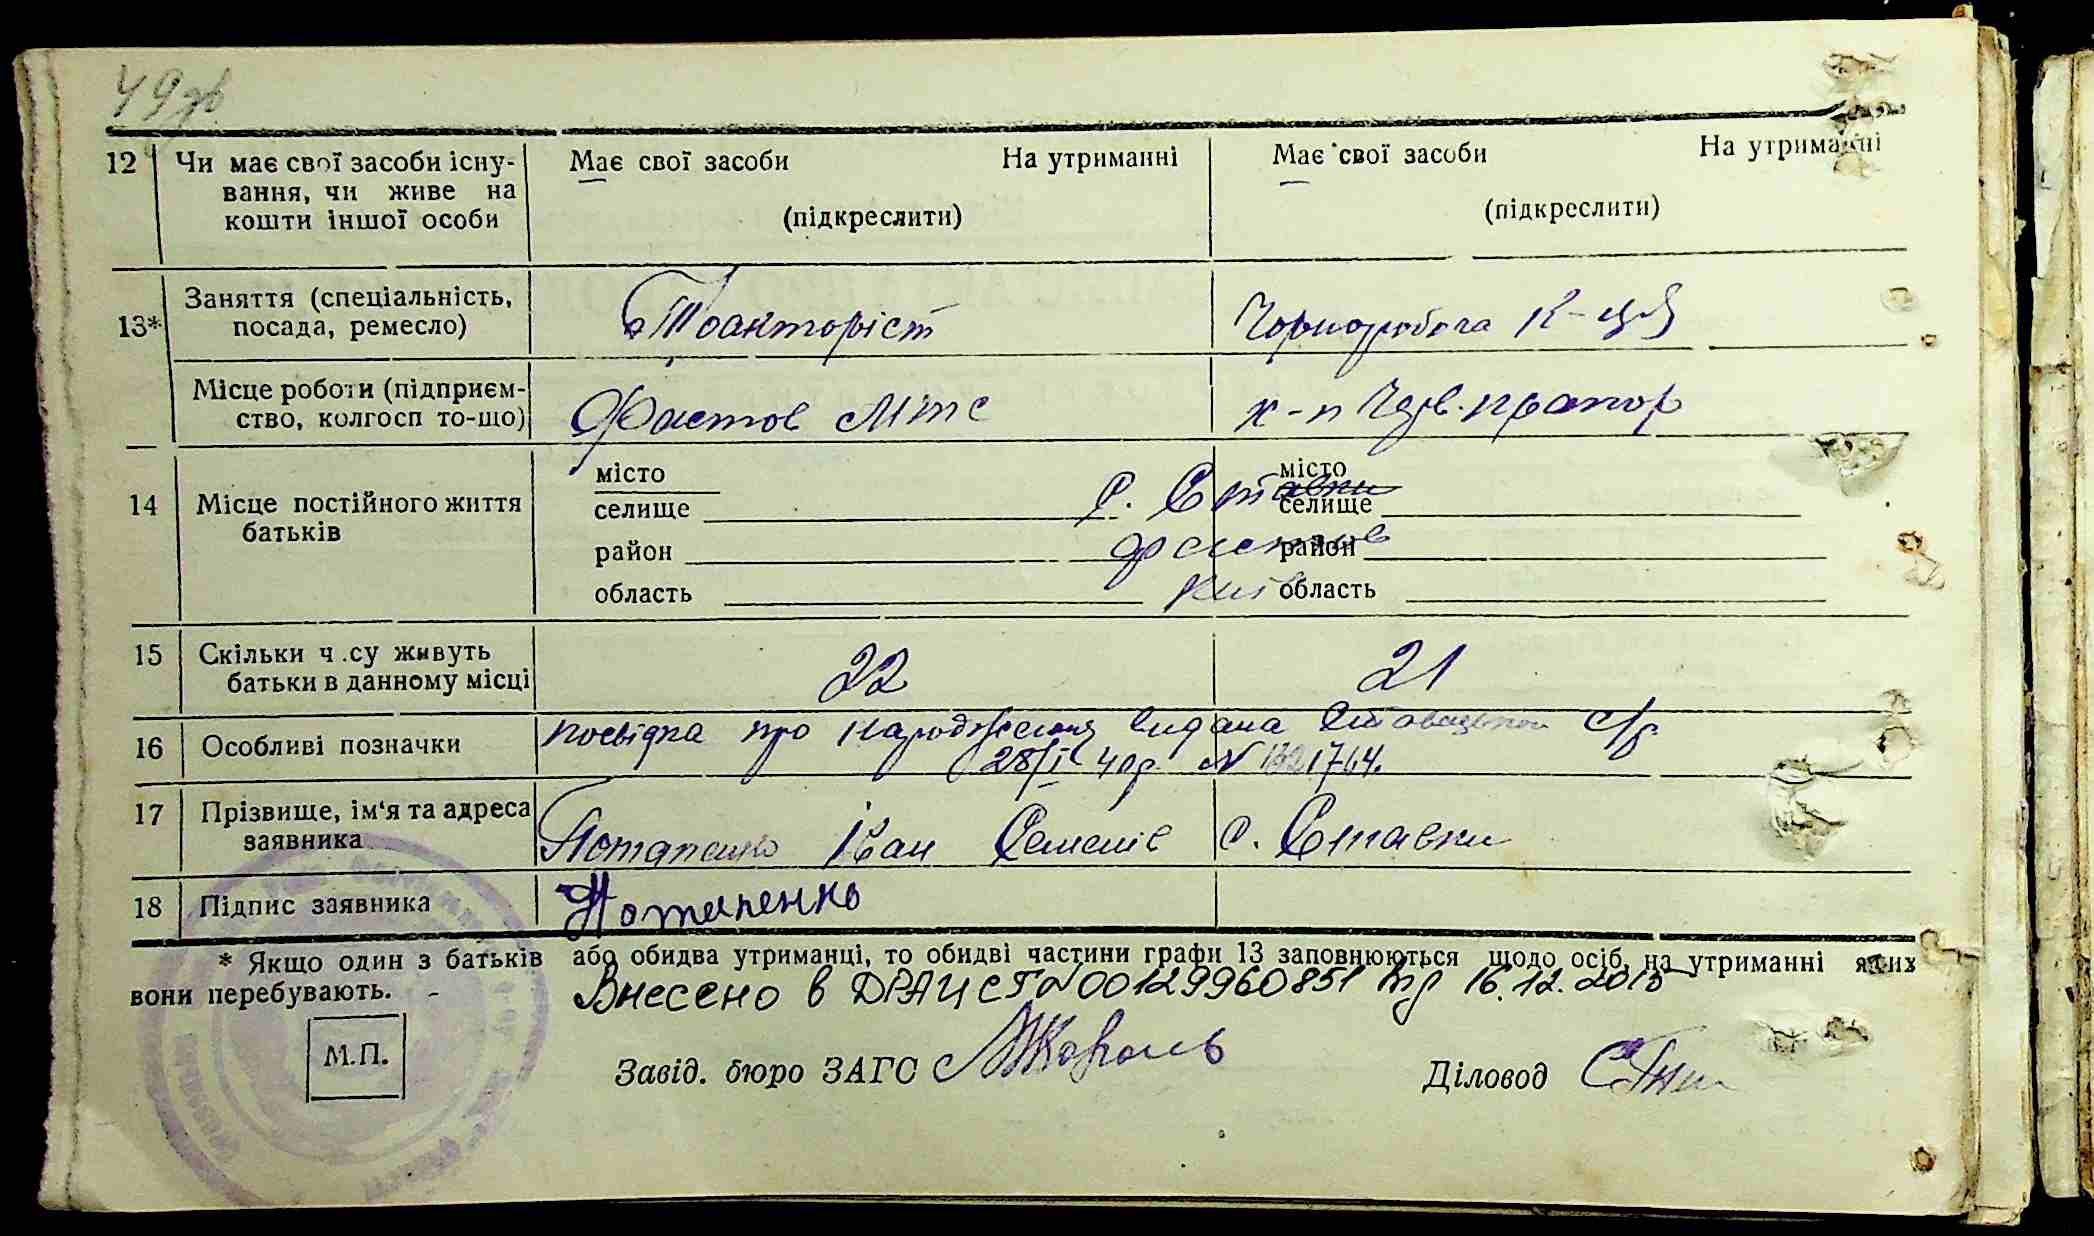 49зв.
12 Чи має свої засоби існу-
вання, чи живе на
кошти іншої особи
Має свої засоби На утриманні
(підкреслити)
Має свої засоби На утриманні
(підкреслити)
13* Заняття (спеціальність,
посада, ремесло)
Тракторіст
Чорноробоча
Місце роботи (підприєм-
ство, колгосп то-що)
Фастов МТС
к-п Черв. прапор
14 Місце постійного життя
батьків
місто
селище
район
область
с. Ставки
Фастов
Київ
місто
селище
район
область
15 Скільки ч.су живуть
батьки в данному місці
22
21
16 Особливі позначки
посвідка про народження видана Ставецькою с/р
28/ІХ 40р. N
17 Прізвище, ім'я та адреса
заявника
Потапенко Іван Семенів с. Ставки
18 Підпис заявника
Потапенко
* Якщо один з батьків або обидва утриманці, то обидві частини графи 13 заповнюються щодо осіб, на утриманні яких
вони перебувають.
Внесено в ДРАЦСГ N00129960851 від 16.12.2015
М.П.
Завід. бюро ЗАГС Король
Діловод